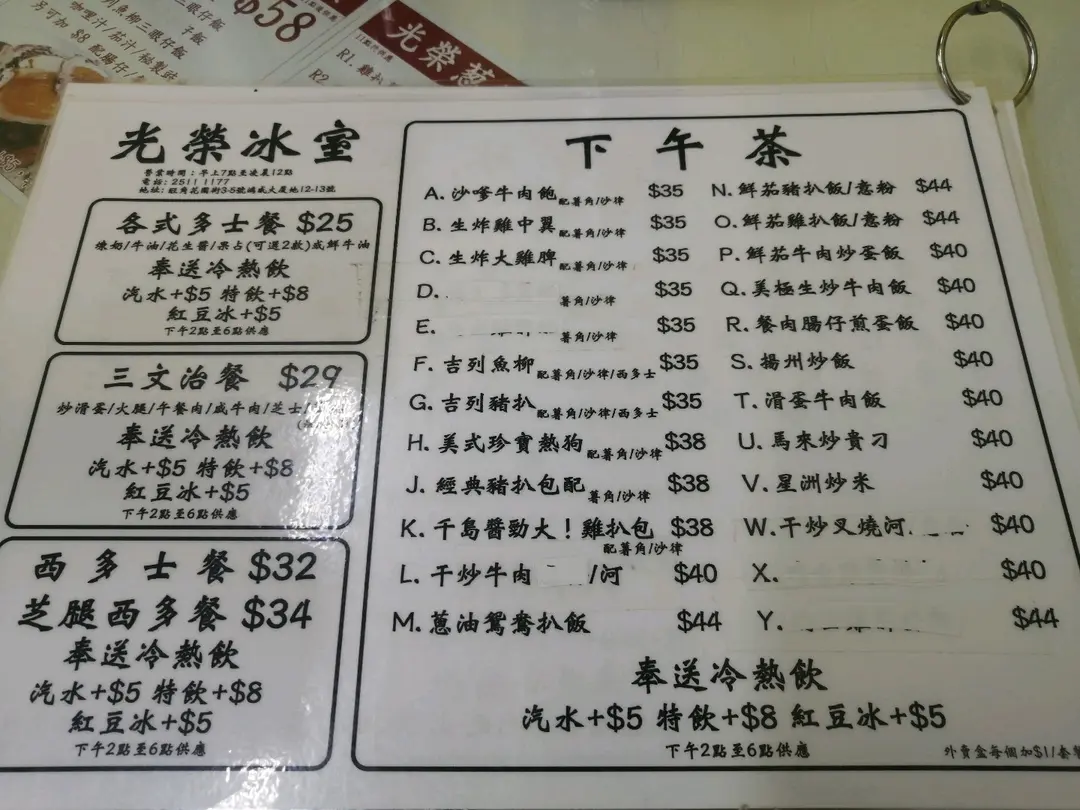 三眼仔飯
列魚柳三眼仔飯
咖哩汁/茄汁/秘製豉
另可加 $8 配腸仔/
$58
光榮
R1. 雞扒
R2
光榮冰室
營業時間：早上7點至凌晨12點
電話: 2511 1177
地址: 旺角花園街3-5號鴻威大廈地12-13號
各式多士餐 $25
煉奶/牛油/花生醬/果占(可選2款)或鮮牛油
奉送冷熱飲
汽水+$5 特飲+$8
紅豆冰+$5
下午2點至6點供應
三文治餐 $29
炒滑蛋/火腿/午餐肉/咸牛肉/芝士/
奉送冷熱飲
汽水+$5 特飲+$8
紅豆冰+$5
下午2點至6點供應
西多士餐 $32
芝腿西多餐 $34
奉送冷熱飲
汽水+$5 特飲+$8
紅豆冰+$5
下午2點至6點供應
下午茶
A. 沙嗲牛肉飽 配薯角/沙律 $35
B. 生炸雞中翼 配薯角/沙律 $35
C. 生炸大雞脾 配薯角/沙律 $35
D. 薯角/沙律 $35
E. 薯角/沙律 $35
F. 吉列魚柳 配薯角/沙律/西多士 $35
G. 吉列豬扒 配薯角/沙律/西多士 $35
H. 美式珍寶熱狗 配薯角/沙律 $38
J. 經典豬扒包配 薯角/沙律 $38
K. 千島醬勁大！雞扒包 $38
配薯角/沙律
L. 干炒牛肉 /河 $40
M. 蔥油鴛鴦扒飯 $44
N. 鮮茄豬扒飯/意粉 $44
O. 鮮茄雞扒飯/意粉 $44
P. 鮮茄牛肉炒蛋飯 $40
Q. 美極生炒牛肉飯 $40
R. 餐肉腸仔煎蛋飯 $40
S. 揚州炒飯 $40
T. 滑蛋牛肉飯 $40
U. 馬來炒貴刁 $40
V. 星洲炒米 $40
W. 干炒叉燒河 $40
X. $40
Y. $44
奉送冷熱飲
汽水+$5 特飲+$8 紅豆冰+$5
下午2點至6點供應
外賣盒每個加$1/套餐